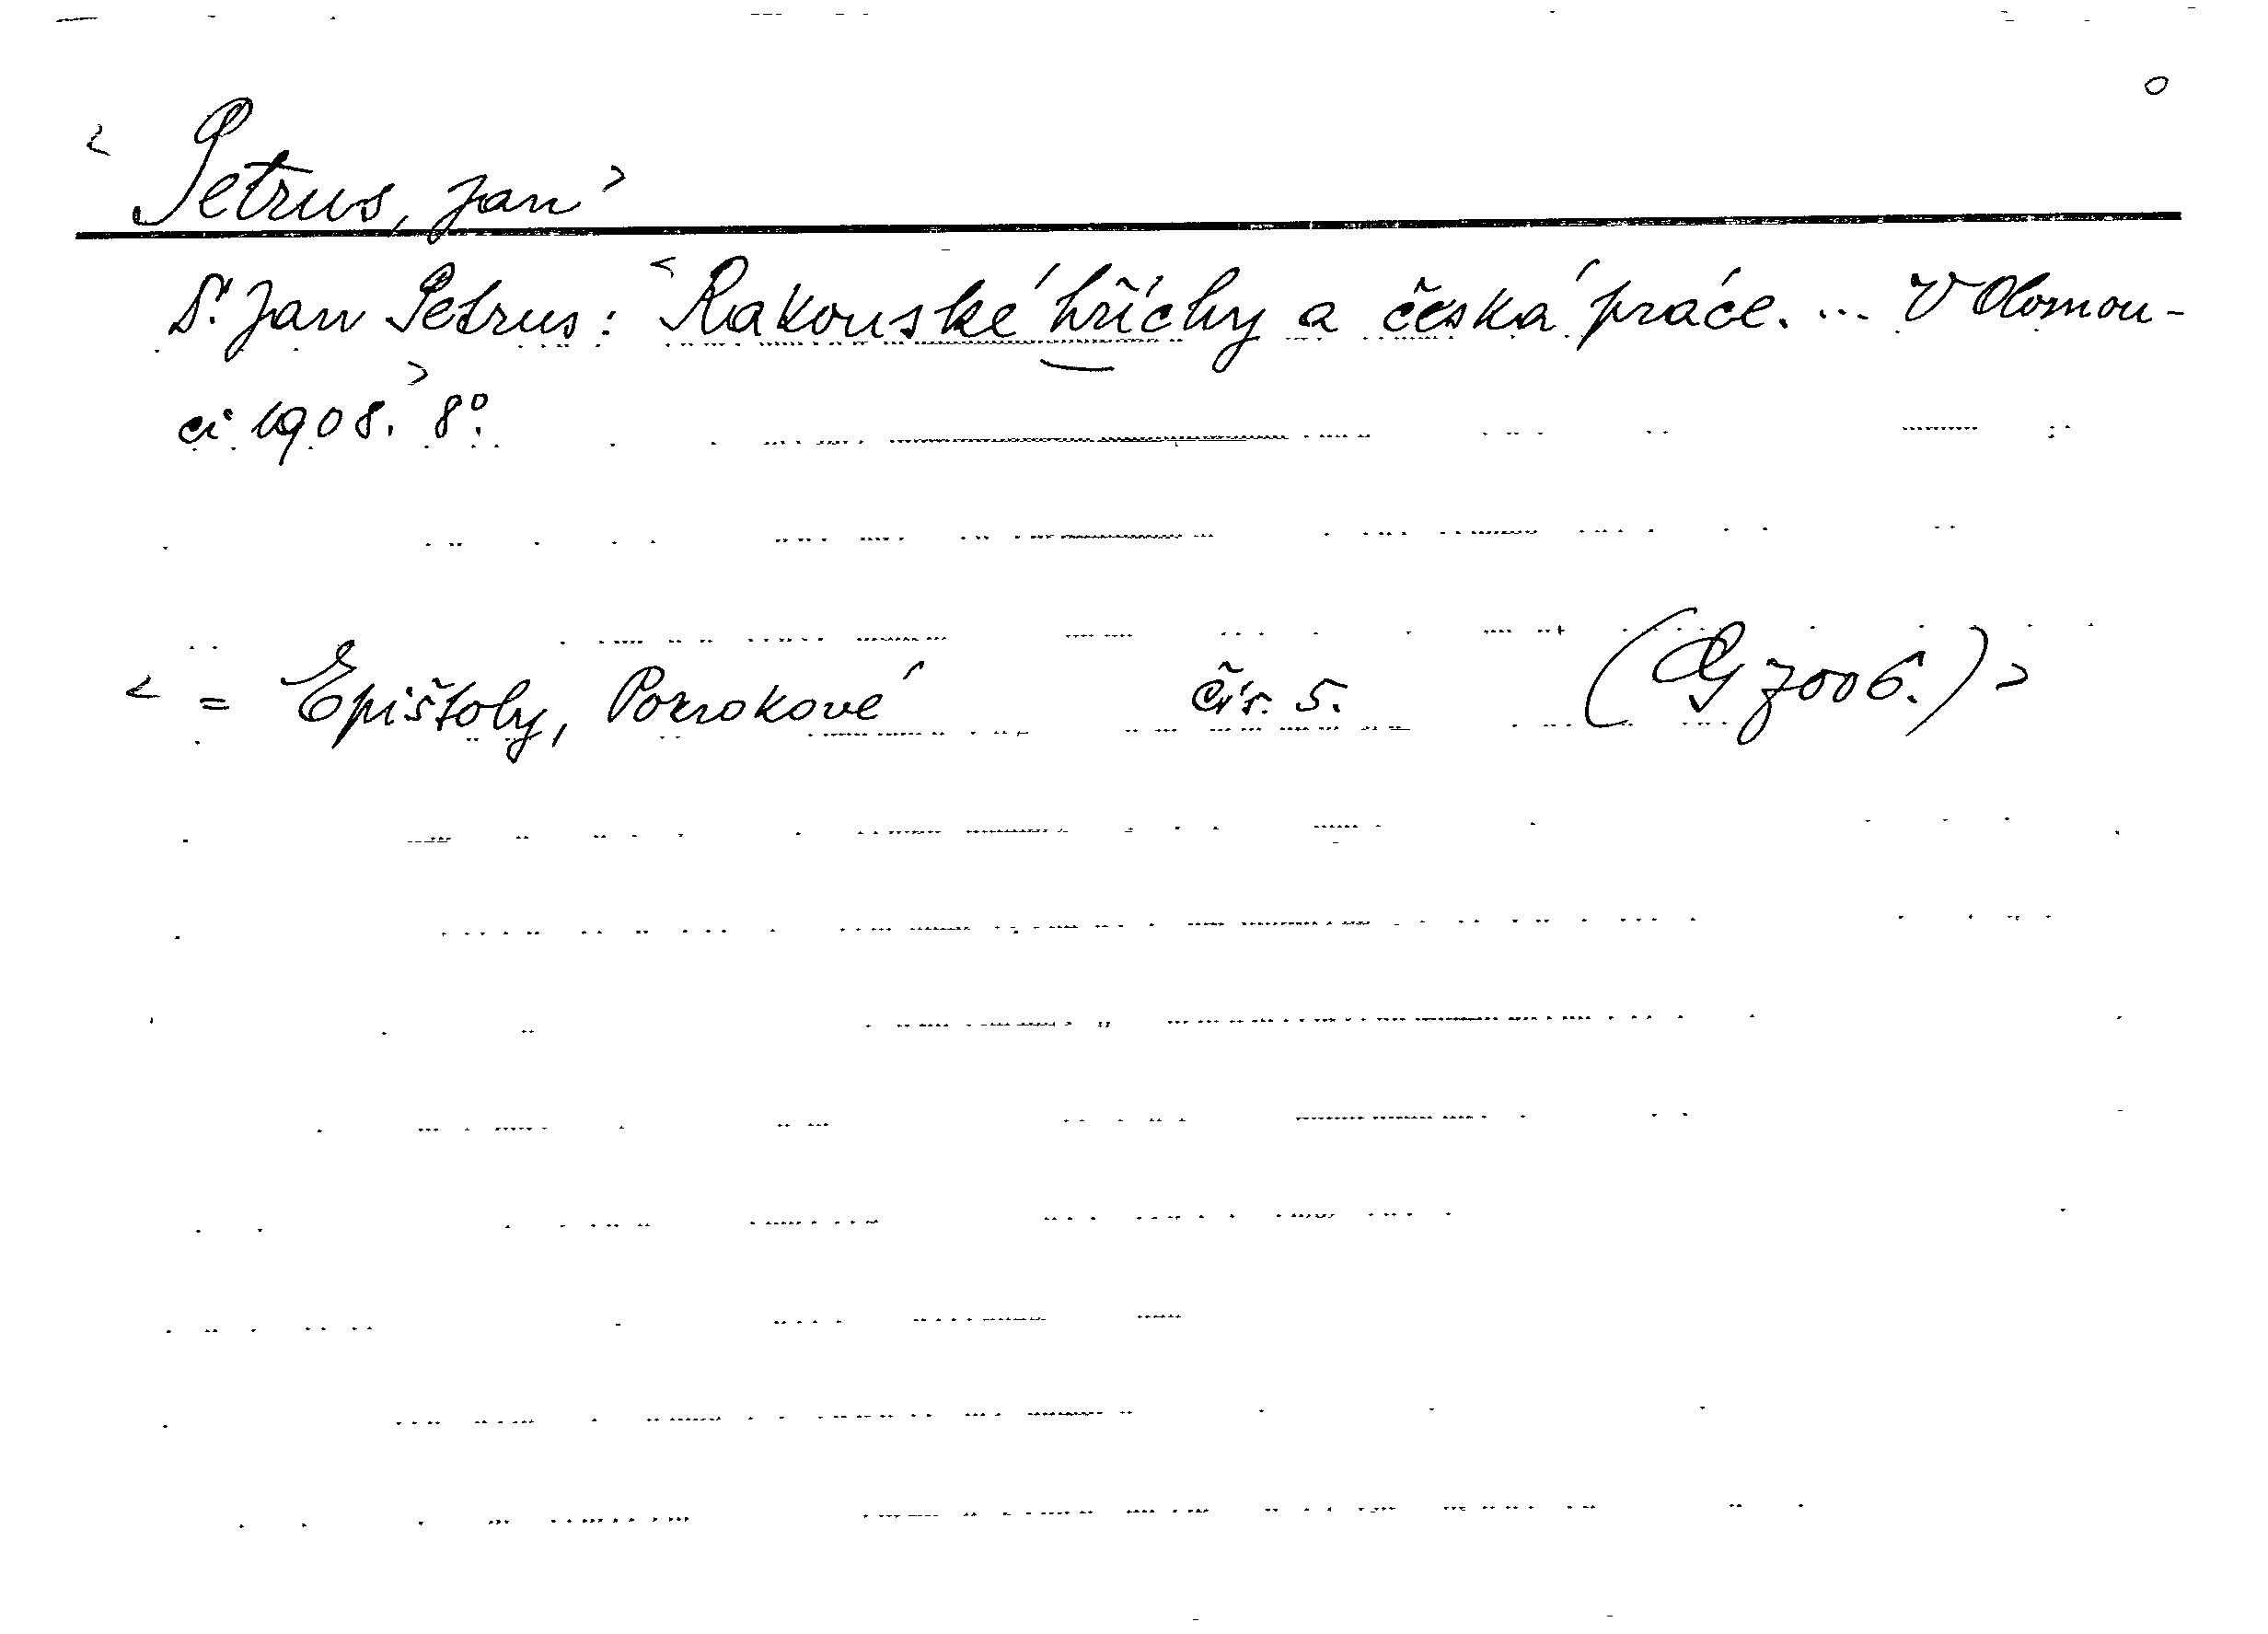 o
< Petrus, Jan >
Dr. Jan Petrus: < Rakouské hříchy a česká práce. ... V Olomou-
ci 1908. > 8°.
< = Epištoly, Pozorokové čís. 5. (G 7006.) >